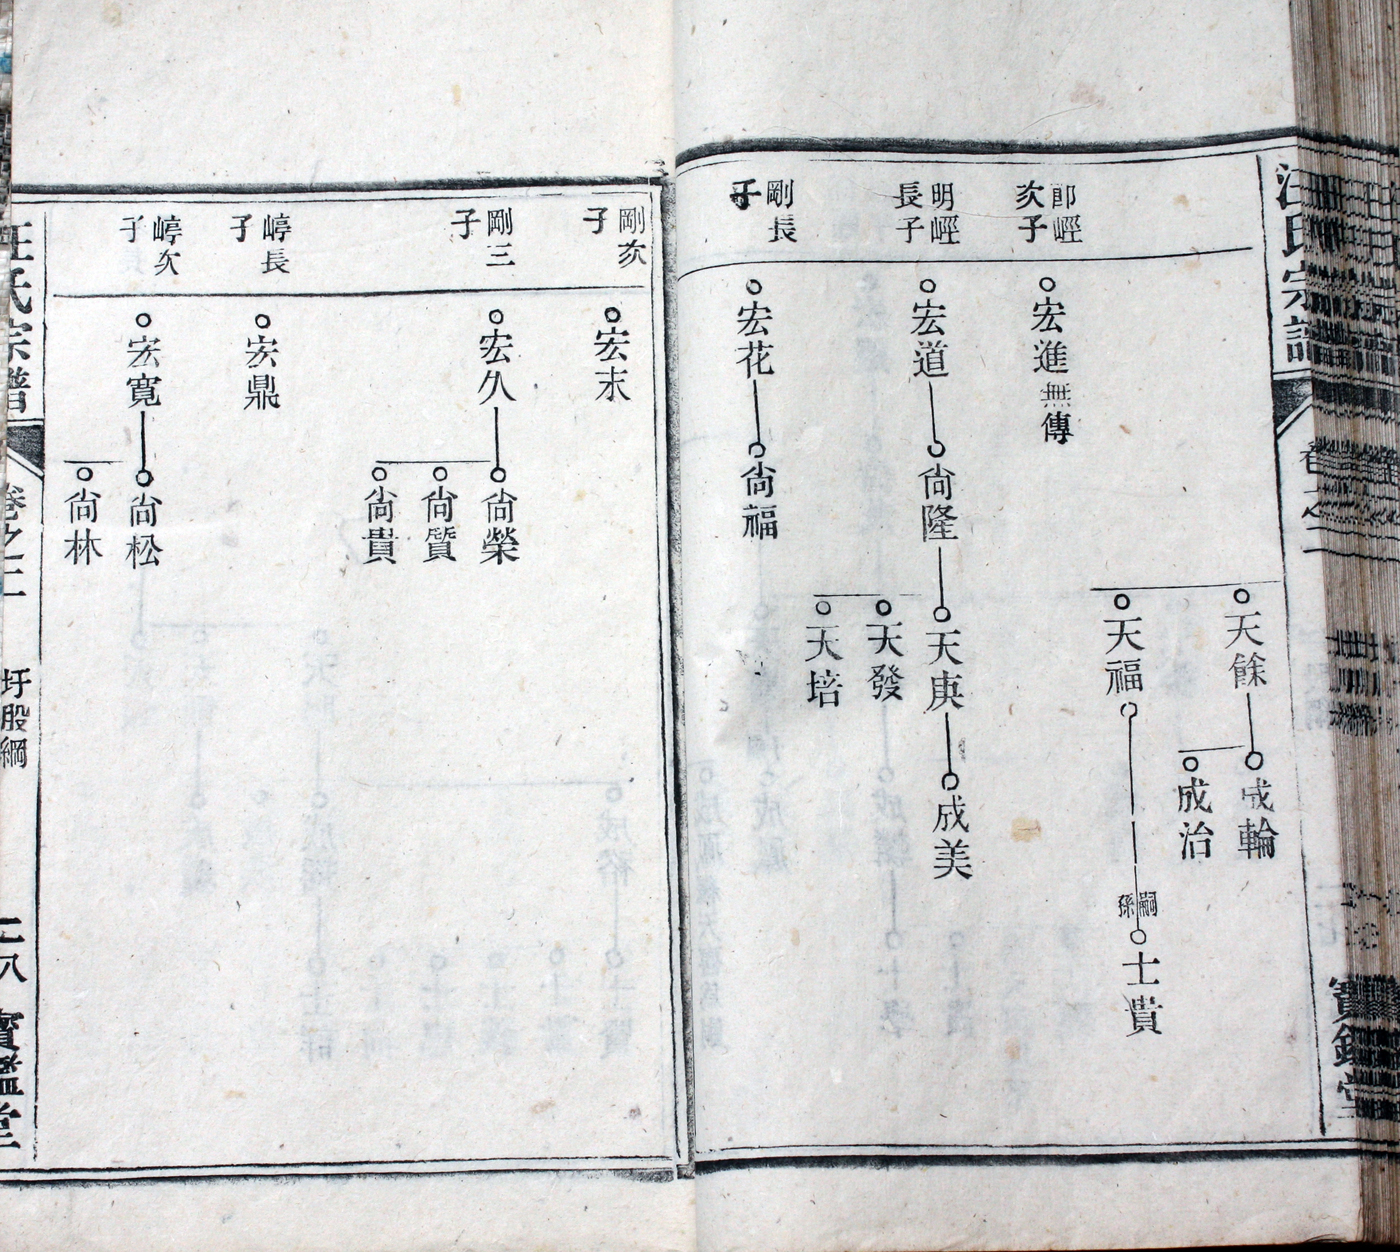 汪氏宗譜
卷之二
寶鑑堂
天餘
成輪
成治
天福
嗣孫
士貴
郎崆次子
宏進無傳
明崆長子
宏道
尙隆
天庚
成美
天發
天培
剛長子
宏花
尙福
剛次子
宏末
剛三子
宏久
尙榮
尙質
尙貴
崞長子
宏鼎
崞次子
宏寬
尙松
尙林
汪氏宗譜
卷之二
圩股綱
二八
寶鑑堂